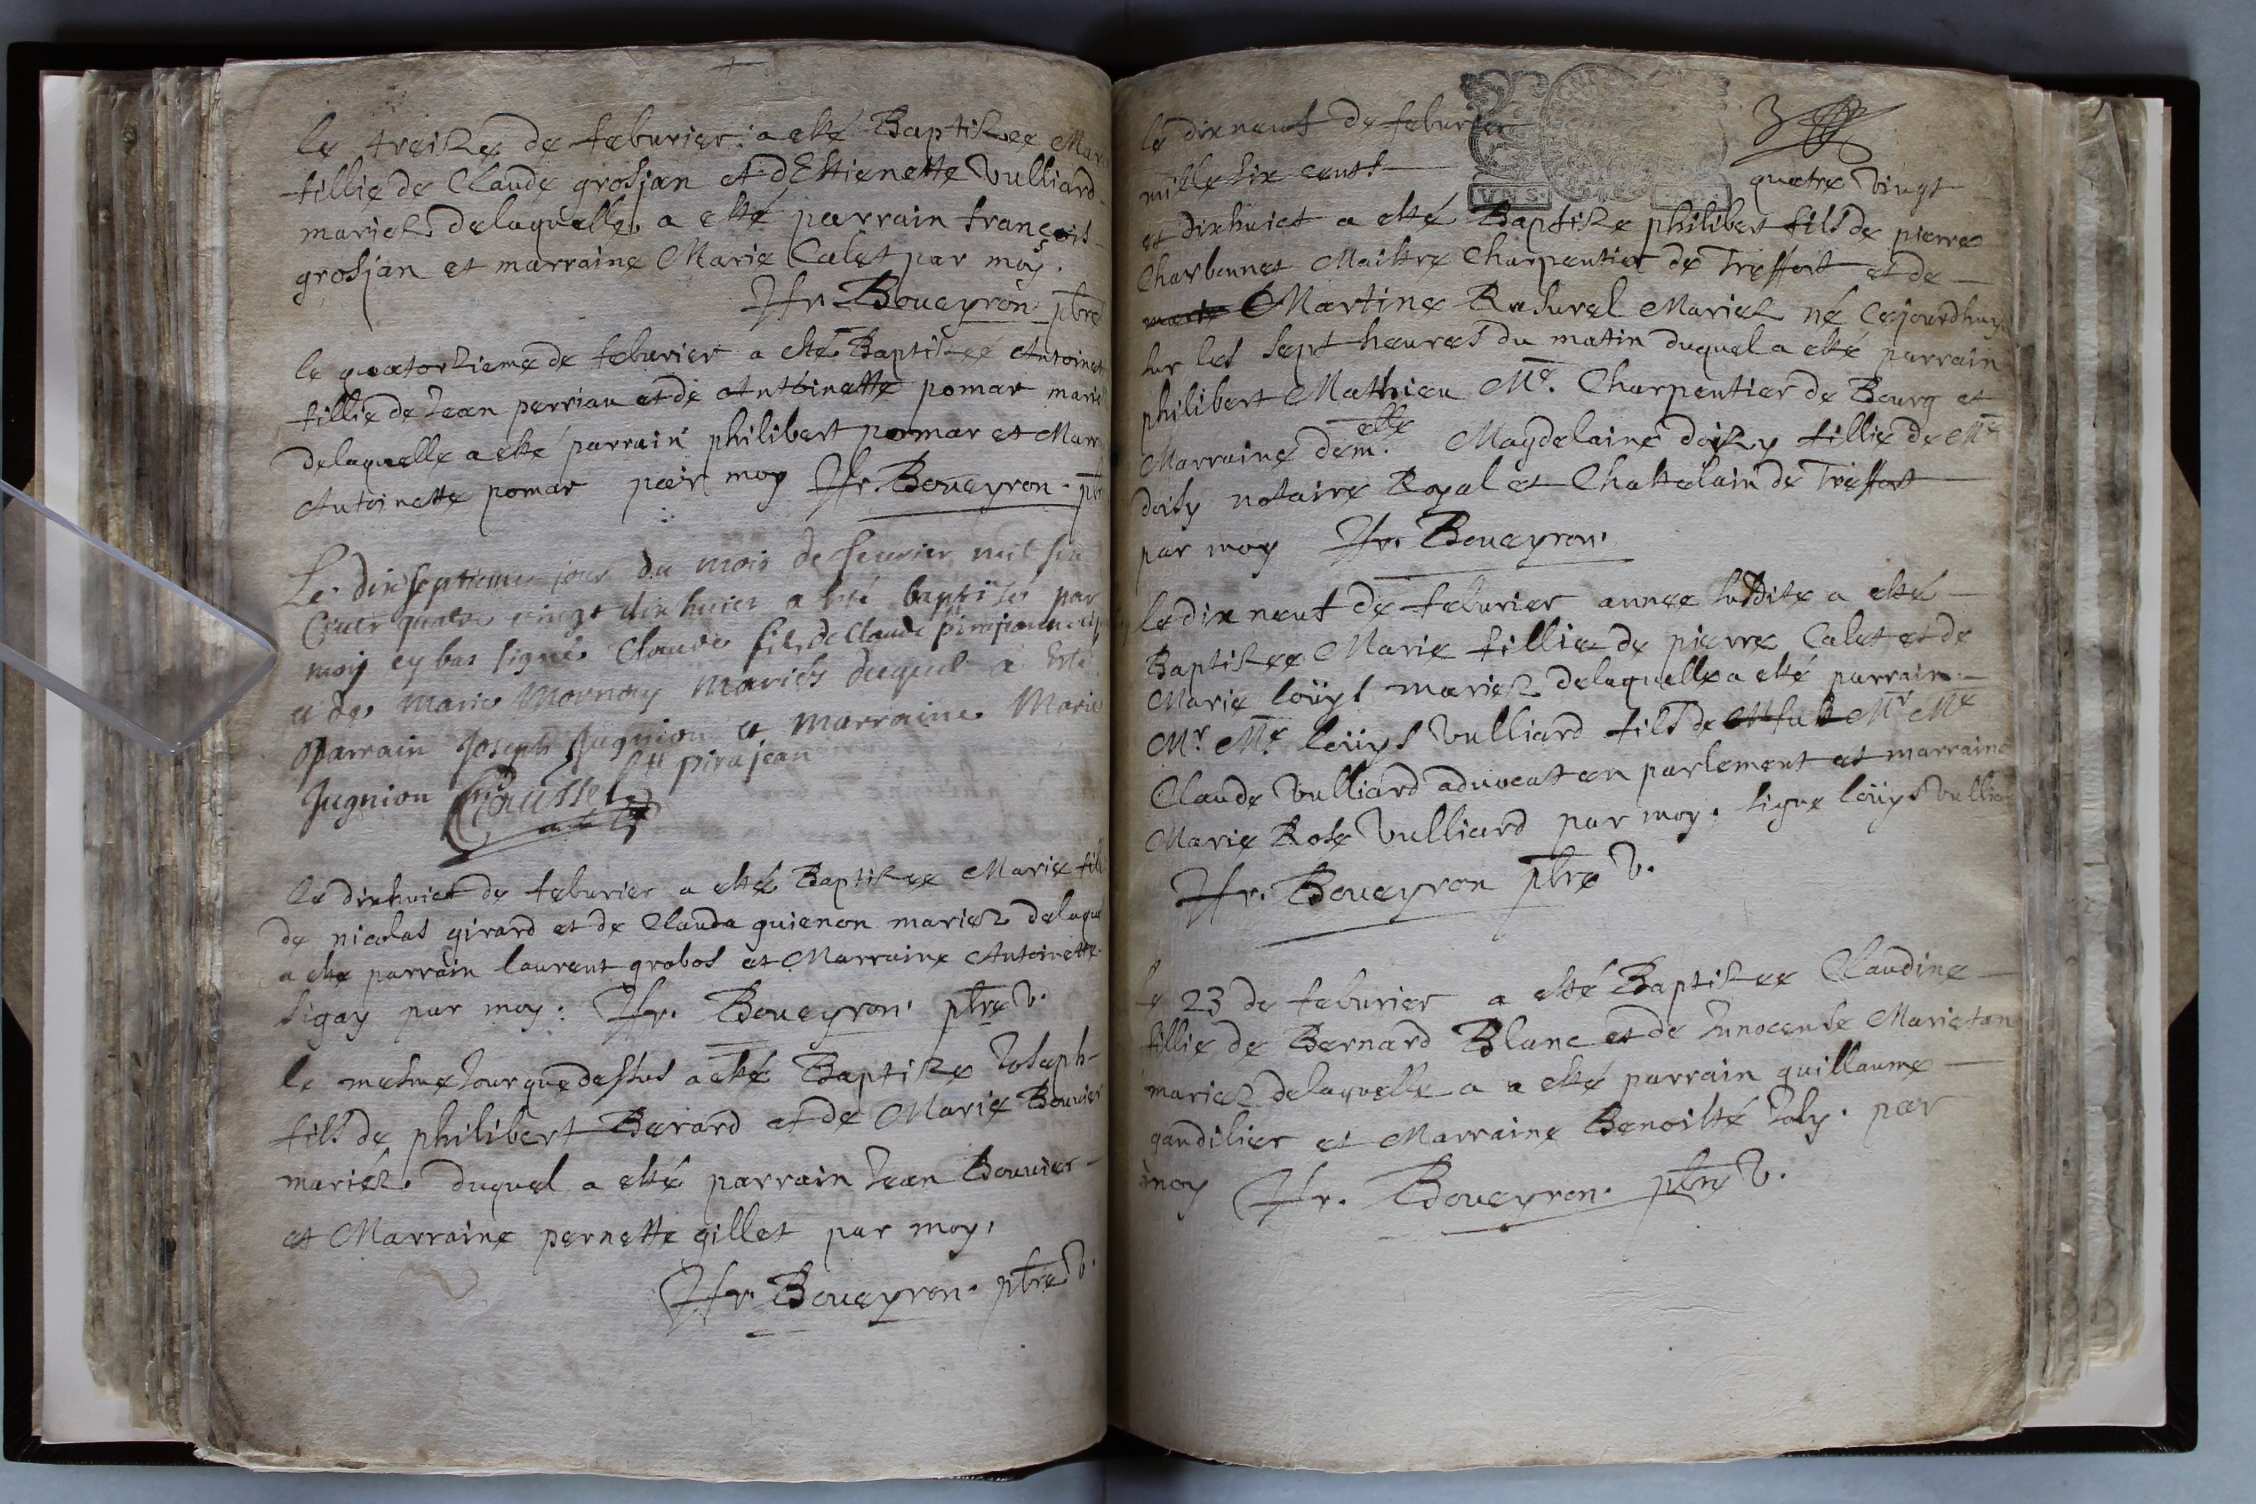 le treize de feburier a esté Baptizee Mar
fillie de Claude grosjan et d'Estienette Vulliard
mariez delaquelle a esté parrain françois
grosjan et marraine Marie Calet par moy.
Fr. Boueyron pbre
le quatorzieme de feburier a esté Baptizeé Antoinet
fillie de Jean perriau et de Antoinette pomar marie
delaquelle a esté parrain philibert pomar et Marr
Antoinette pomar par moy Fr. Boueyron. pbr
Le dixseptieme jour du mois de feurier mil six
Cent quatre vingt dix huict a Esté baptisé par
moy cy bas signé Claude fils de Claude
et de Marie Mornay Mariés duquel a Esté
parrain Joseph Jugnion et marraine Marie
Jugnion du pirajean
Coussel
le dixhuict de feburier a esté Baptizee Marie fill
de nicolas girard et de Clauda guienon mariez delaque
a esté parrain laurent grobos et Marraine Antoinette
sigay par moy: Fr. Boueyron. pbre V.
le mesme Jour que dessus a esté Baptize Joseph
fils de philibert Berard et de Marie Bouvier
mariéz. duquel a esté parrain Jean Bouvier
et Marraine pernette gillet par moy,
Fr. Boueyron. pbre V.
le dixneuf de feburier
mille six cents
VNS
quatre Vingt
et dixhuict a esté Baptize philibert fils de pierre
Charbonnet Maistre Charpentier de Treffort et de
marie Martine Rasurel Mariez né cejourdhuy
sur les sept heures du matin duquel a esté parrain
philibert Mathieu Me. Charpentier de Bourg et
Marraine dem.elle Magdelaine doisy fillie de Me
doisy notaire Royal et Chastelain de Treffort
par moy Fr. Boueyron.
le dix neuf de feburier annee susdite a esté
Baptizee Marie fillie de pierre Calet et de
Marie loüys mariez delaquelle a esté parrain
Mr Me loüys Vulliard fils de Mr Me
Claude Vulliard aduocat en parlement et marraine
Marie Rose Vulliard par moy, signe loüys Vulliar
Fr. Boueyron pbre V.
le 23 de feburier a esté Baptizee Claudine
fillie de Bernard Blanc et de Innocente Marieton
mariez delaquelle a a esté parrain guillaume
gandilier et Marraine Benoisté Joly. par
moy Fr. Boueyron. pbre V.